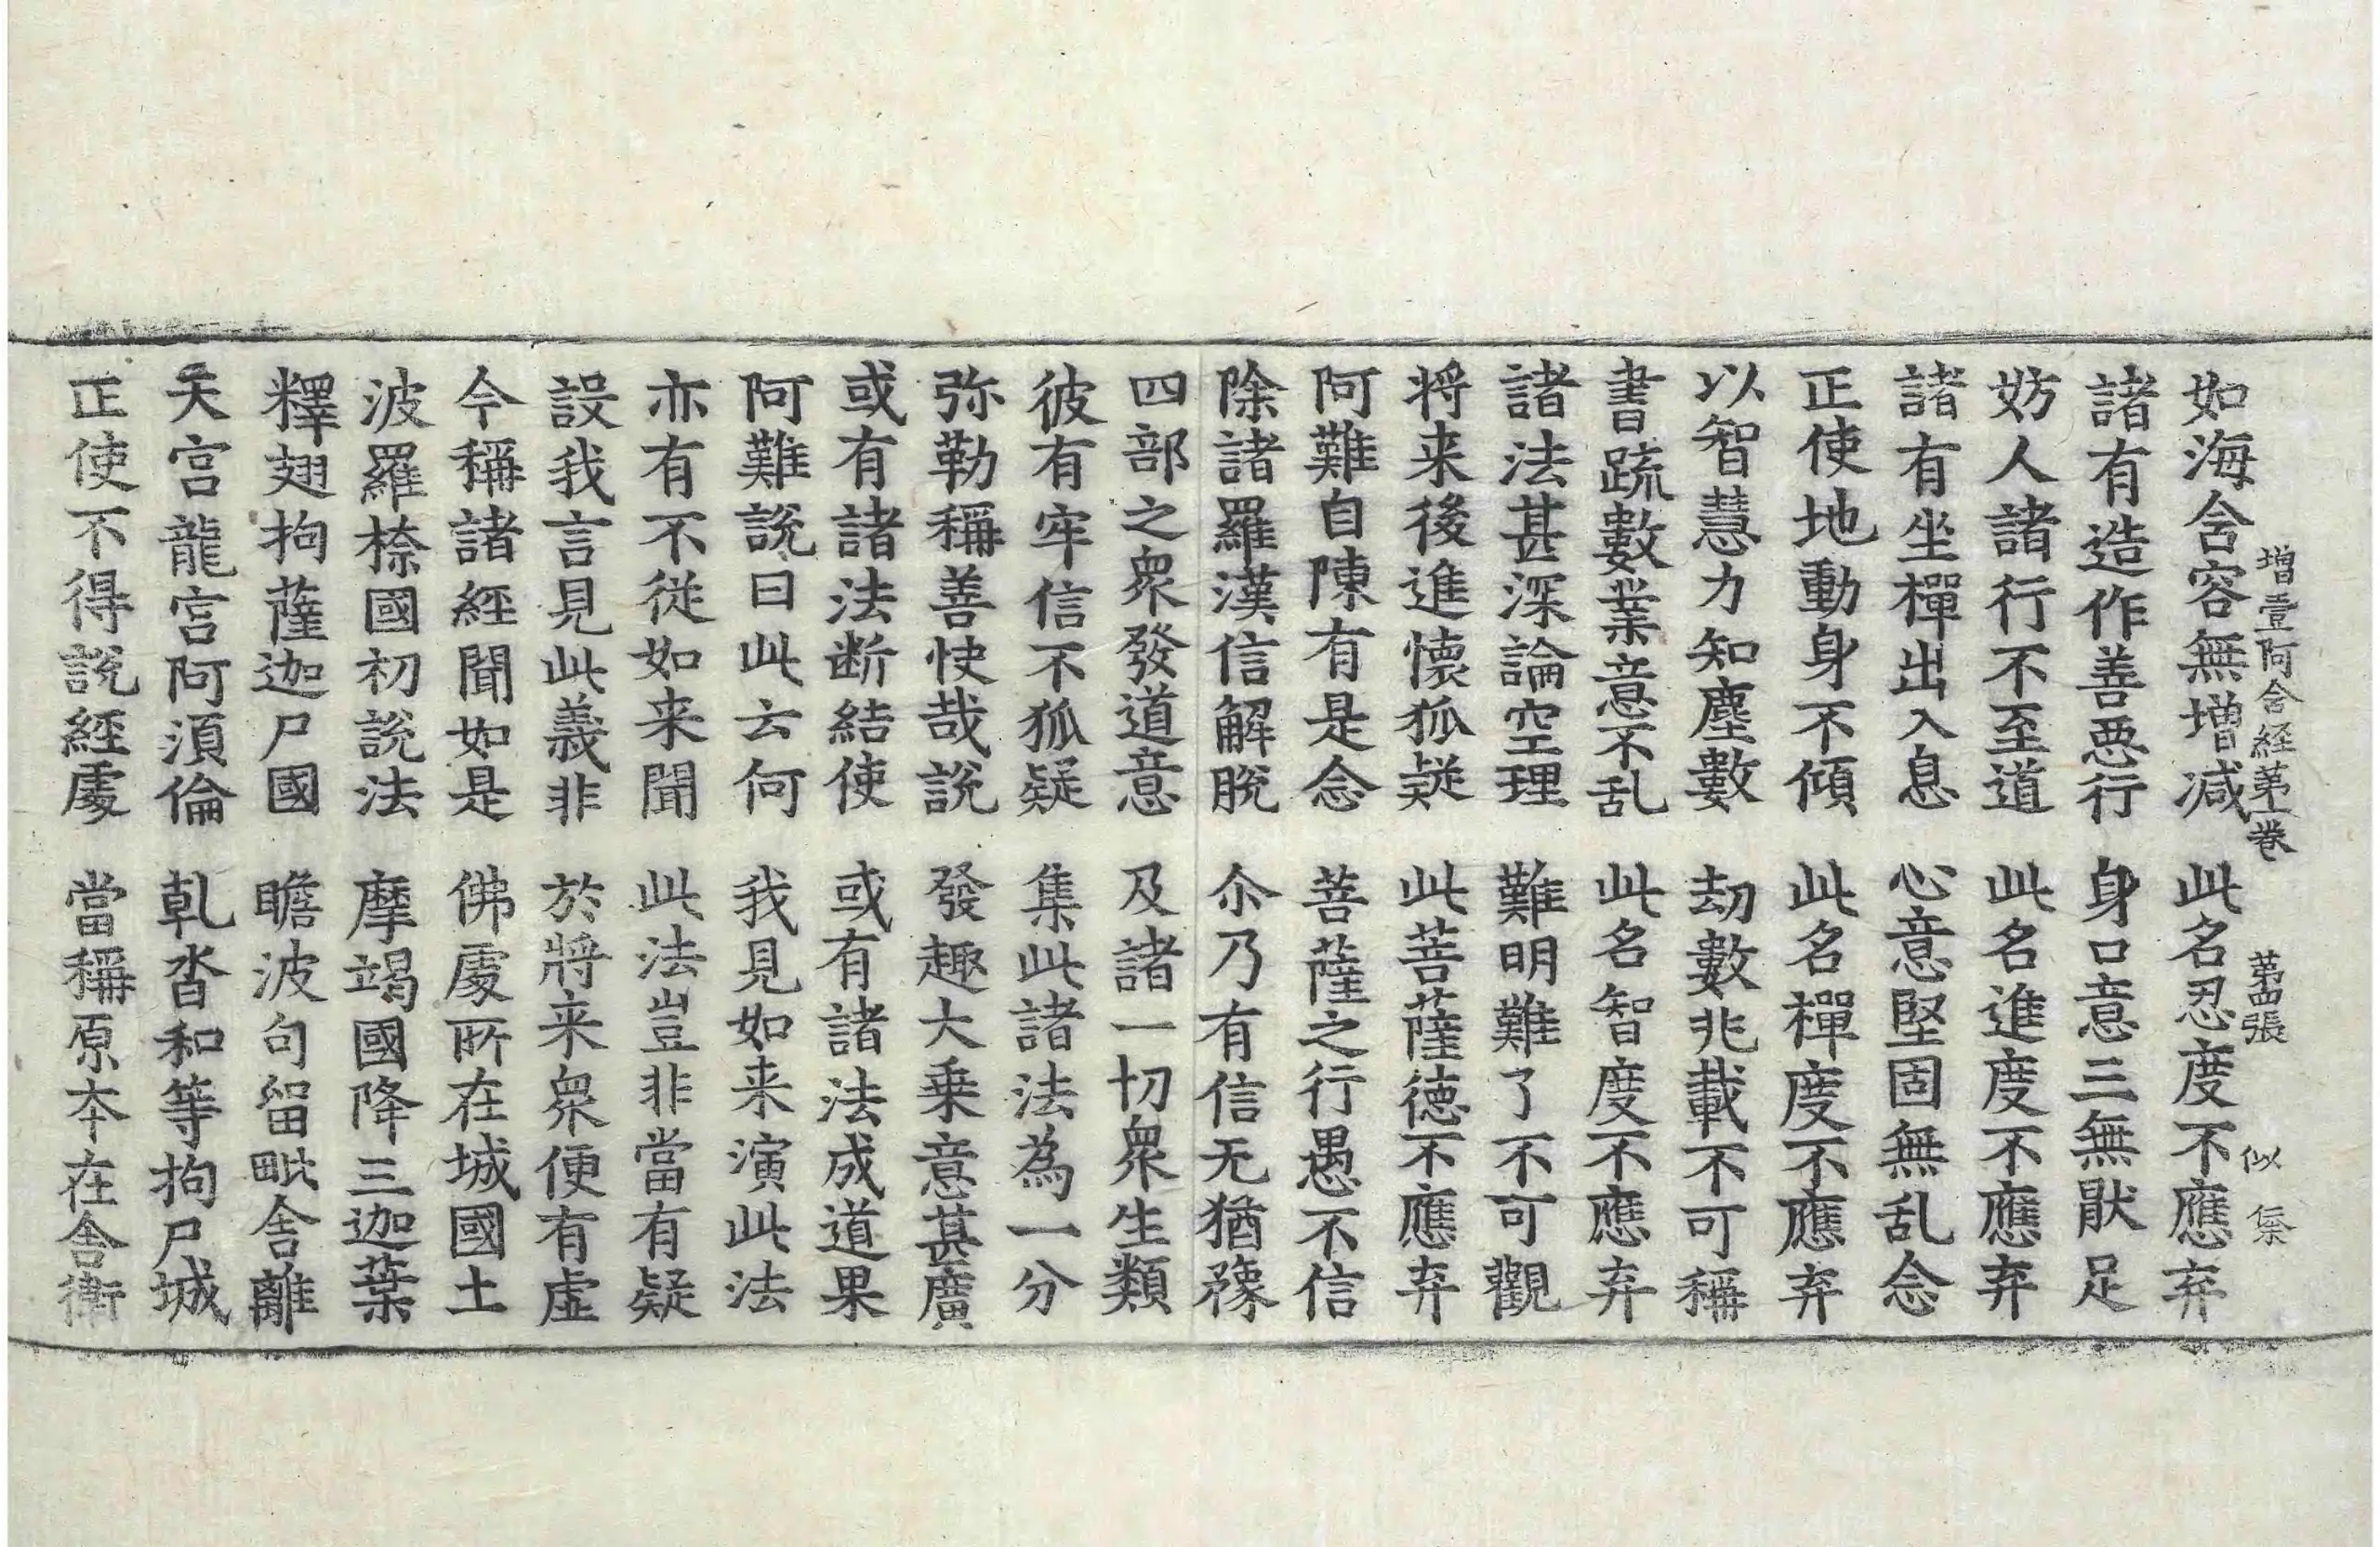 增壹阿含經第一卷 第四張 似
如海含容無增减 此名忍度不應弃
諸有造作善惡行 身口意三無猒足
妨人諸行不至道 此名進度不應弃
諸有坐禪出入息 心意堅固無乱念
正使地動身不傾 此名禪度不應弃
以智慧力知塵數 劫數兆載不可稱
書䟽數業意不乱 此名智度不應弃
諸法甚深論空理 難明難了不可觀
将来後進懷狐疑 此菩薩德不應弃
阿難自陳有是念 菩薩之行愚不信
除諸羅漢信解脫 尒乃有信无猶豫
四部之衆發道意 及諸一切衆生類
彼有牢信不狐疑 集此諸法為一分
弥勒稱善快哉說 發趣大乗意甚廣
或有諸法断結使 或有諸法成道果
阿難說曰此云何 我見如来演此法
亦有不從如来聞 此法豈非當有疑
設我言見此義非 於將来衆便有虛
今稱諸經聞如是 佛處所在城國土
波羅㮈國初說法 摩竭國降三迦葉
釋翅拘薩迦尸國 瞻波句留毗舍離
天宮龍宮阿須倫 乹沓和等拘尸城
正使不得說經處 當稱原本在舍衛